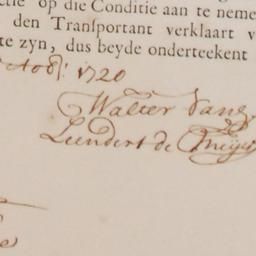 ctie op die Conditie aan te neme
den Transportant verklaart v
te zyn, dus beyde onderteekent
octob: 1720
Walter Vang
Leendert de